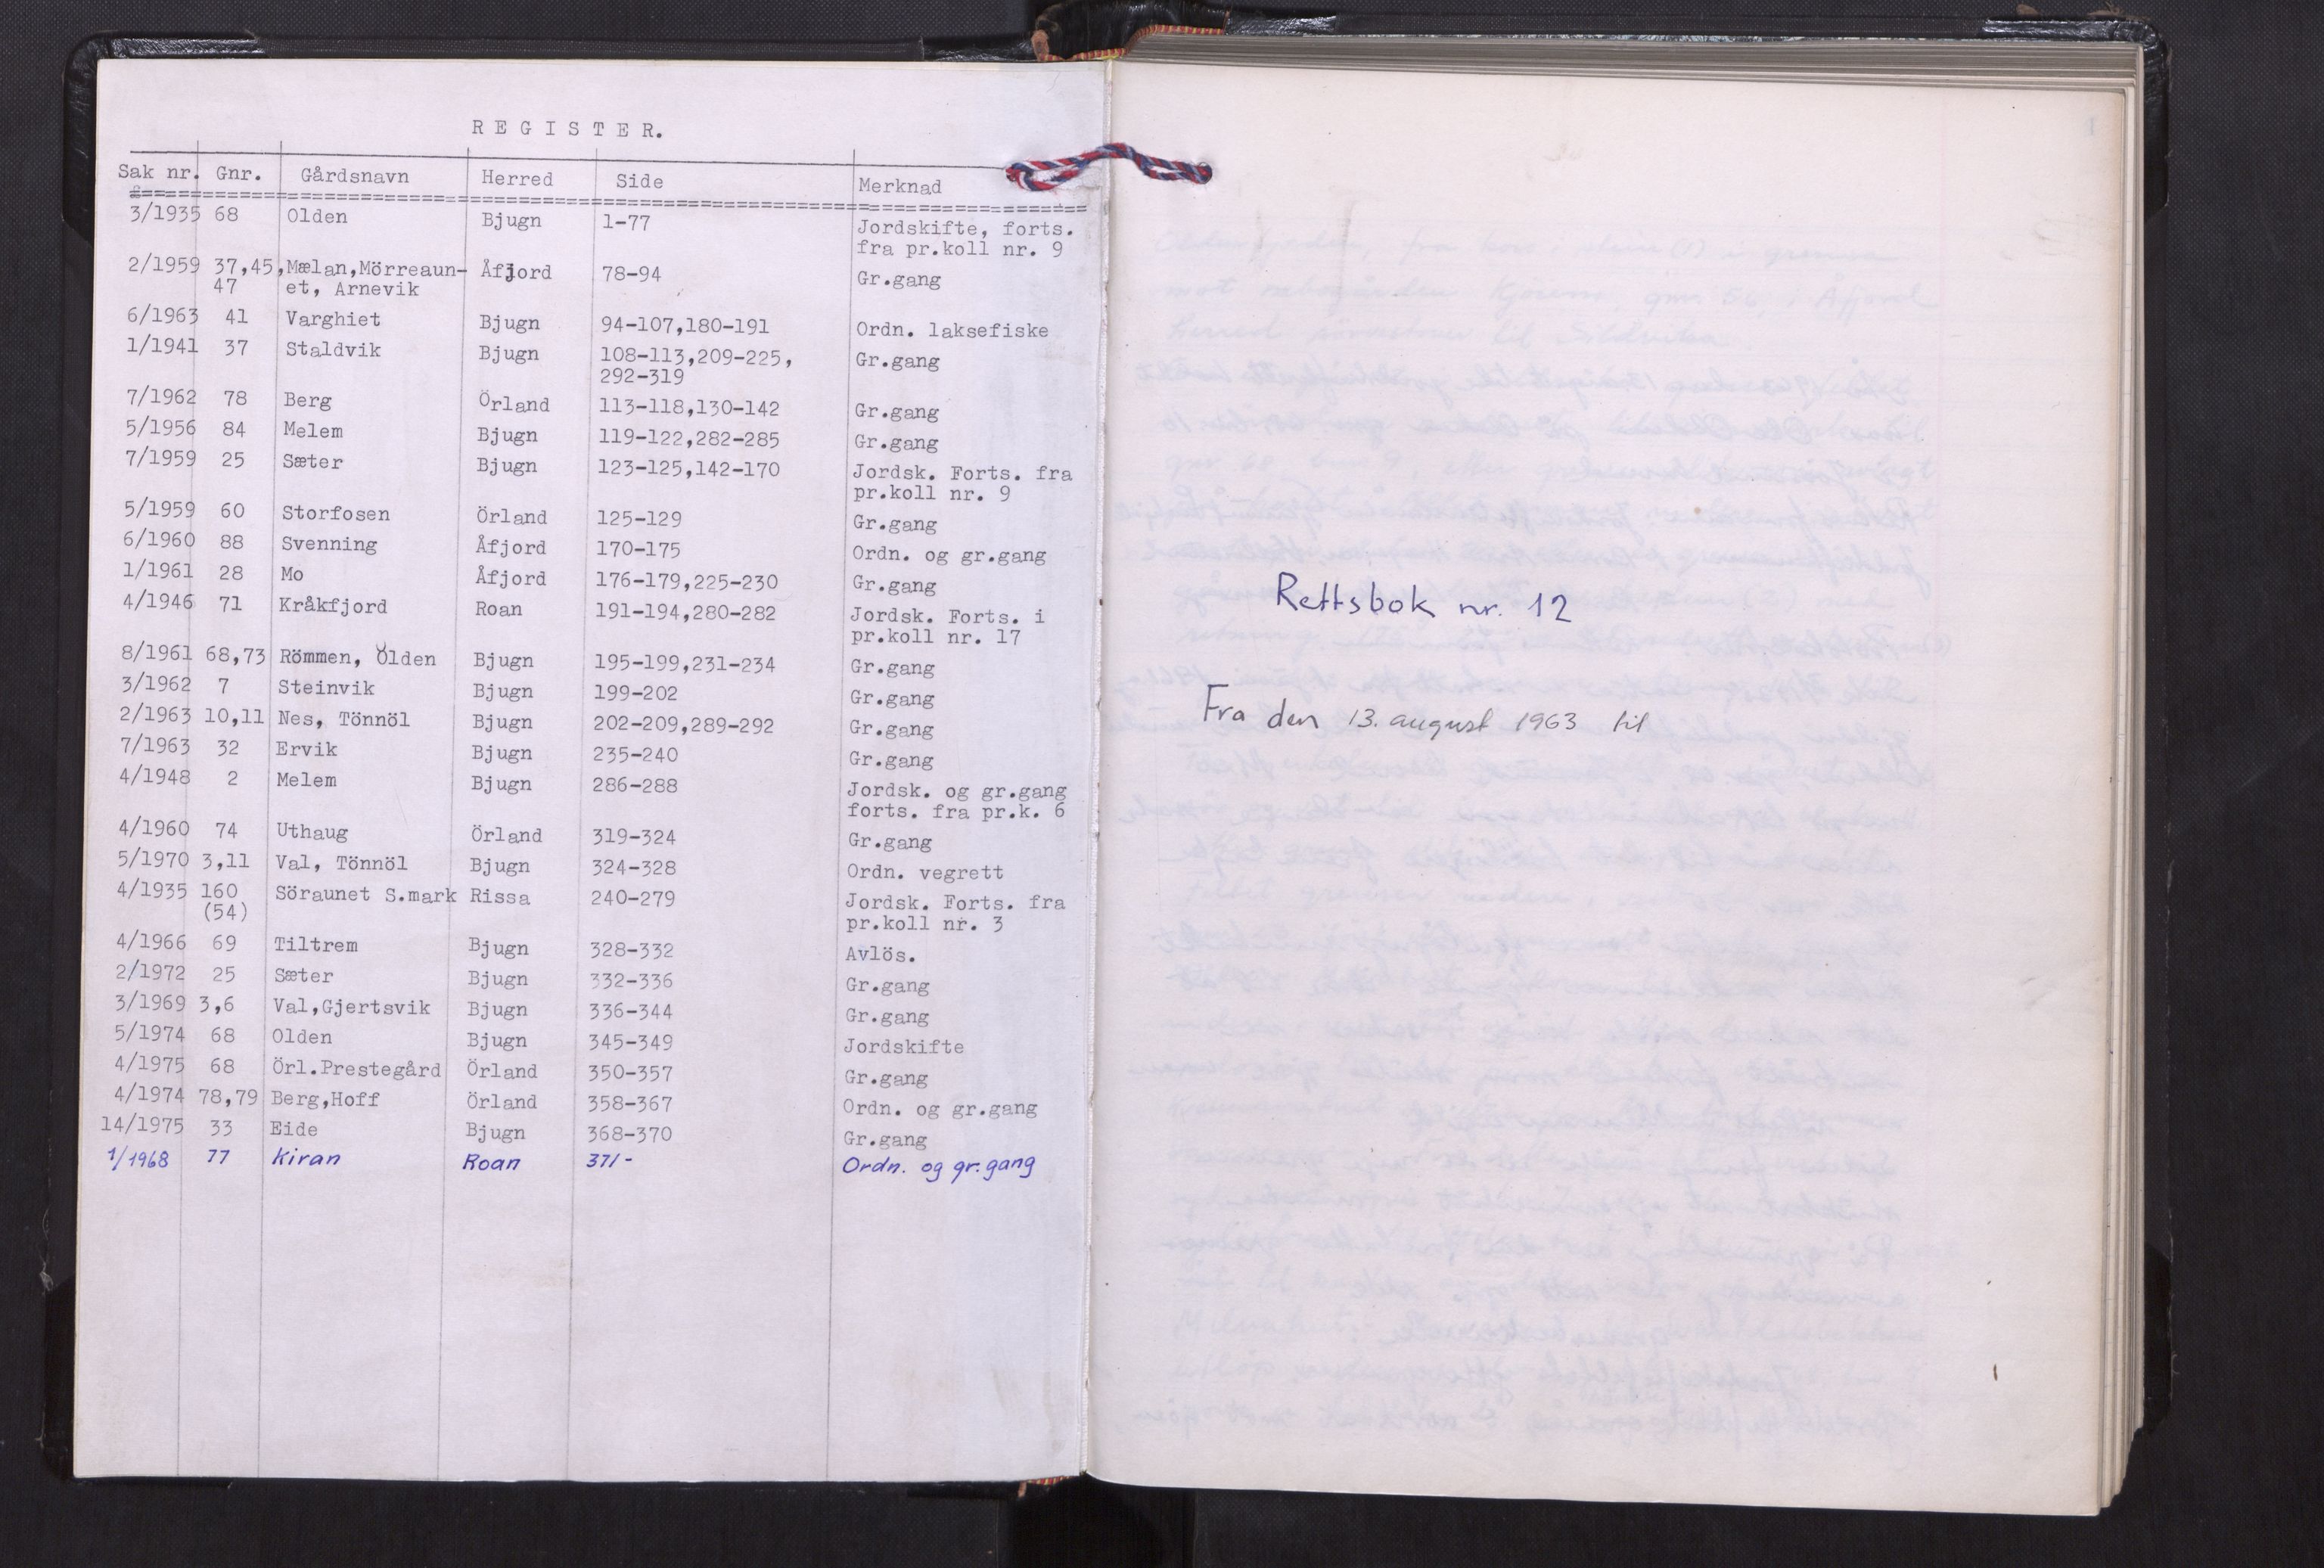 REGISTER.
Sak nr. Gnr. Gårdsnavn Herred Side Merknad
3/1935 68 Olden Bjugn 1-77 Jordskifte, forts.
fra pr.koll nr. 9
2/1959 37,45, Mælan,Mörreaun- Åfjord 78-94 Gr.gang
47 et, Arnevik
6/1963 41 Varghiet Bjugn 94-107,180-191 Ordn. laksefiske
1/1941 37 Staldvik Bjugn 108-113,209-225, Gr.gang
292-319
7/1962 78 Berg Örland 113-118,130-142 Gr.gang
5/1956 84 Melem Bjugn 119-122,282-285 Gr.gang
7/1959 25 Sæter Bjugn 123-125,142-170 Jordsk. Forts. fra
pr.koll nr. 9
5/1959 60 Storfosen Örland 125-129 Gr.gang
6/1960 88 Svenning Åfjord 170-175 Ordn. og gr.gang
1/1961 28 Mo Åfjord 176-179,225-230 Gr.gang
4/1946 71 Kråkfjord Roan 191-194,280-282 Jordsk. Forts. i
pr.koll nr. 17
8/1961 68,73 Römmen, Olden Bjugn 195-199,231-234 Gr.gang
3/1962 7 Steinvik Bjugn 199-202 Gr.gang
2/1963 10,11 Nes, Tönnöl Bjugn 202-209,289-292 Gr.gang
7/1963 32 Ervik Bjugn 235-240 Gr.gang
4/1948 2 Melem Bjugn 286-288 Jordsk. og gr.gang
forts. fra pr.k. 6
4/1960 74 Uthaug Örland 319-324 Gr.gang
5/1970 3,11 Val, Tönnöl Bjugn 324-328 Ordn. vegrett
4/1935 160 Söraunet S.mark Rissa 240-279 Jordsk. Forts. fra
(54) pr.koll nr. 3
4/1966 69 Tiltrem Bjugn 328-332 Avlös.
2/1972 25 Sæter Bjugn 332-336 Gr.gang
3/1969 3,6 Val,Gjertsvik Bjugn 336-344 Gr.gang
5/1974 68 Olden Bjugn 345-349 Jordskifte
4/1975 68 Örl.Prestegård Örland 350-357 Gr.gang
4/1974 78,79 Berg,Hoff Örland 358-367 Ordn. og gr.gang
14/1975 33 Eide Bjugn 368-370 Gr.gang
1/1968 77 Kiran Roan 371- Ordn. og gr.gang
1
Rettsbok nr. 12
Fra den 13. august 1963 til